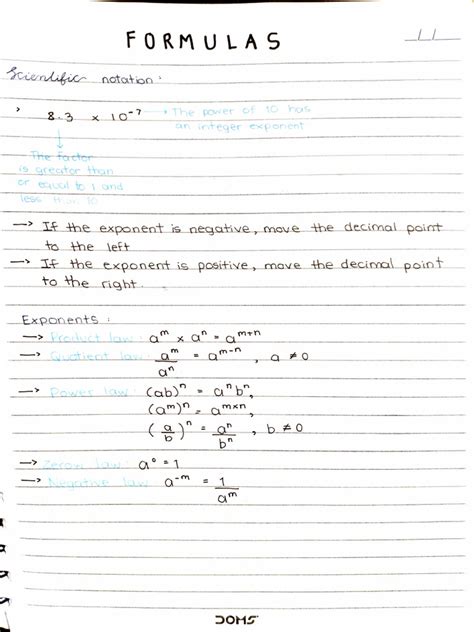 FORMULAS
Scientific notation:
8.3 × 10⁻⁷ → The power of 10 has
an integer exponent
The factor
is greater than
or equal to 1 and
less than 10
→ If the exponent is negative, move the decimal point
to the left
→ If the exponent is positive, move the decimal point
to the right.
Exponents:
→ Product law: aᵐ × aⁿ = aᵐ⁺ⁿ
→ Quotient law: aᵐ/aⁿ = aᵐ⁻ⁿ, a ≠ 0
→ Power law: (ab)ⁿ = aⁿbⁿ,
(aᵐ)ⁿ = aᵐˣⁿ,
(a/b)ⁿ = aⁿ/bⁿ, b ≠ 0
→ Zerow law: a⁰ = 1
→ Negative law: a⁻ᵐ = 1/aᵐ
DOMS